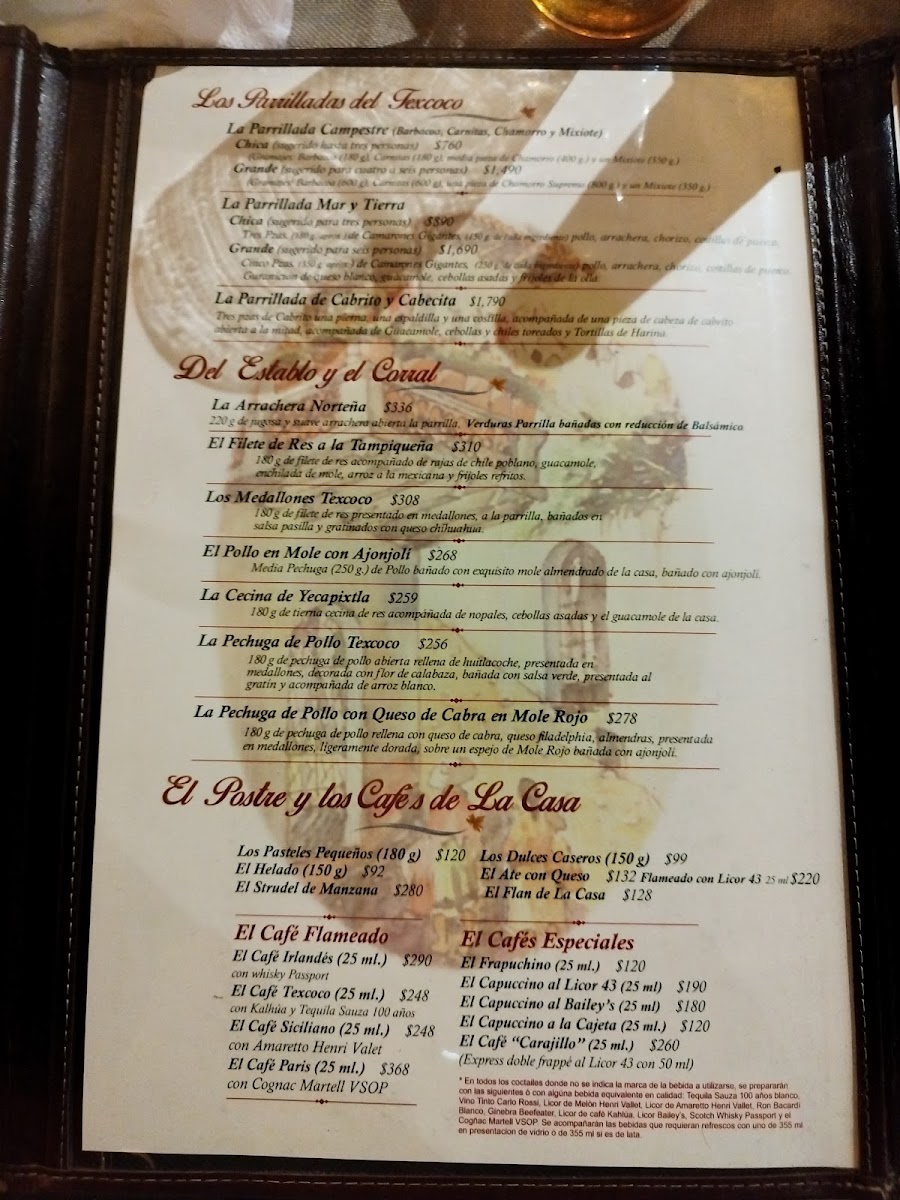 Los Parrilladas del Texcoco
La Parrillada Campestre (Barbacoa, Carnitas, Chamorro y Mixiote)
Chica (sugerido hasta tres personas) $760
(Gramajes: Barbacoa (180 g), Carnitas (180 g), media pieza de Chamorro (400 g) y un Mixiote (350 g.)
Grande (sugerido para cuatro a seis personas) $1,490
(Gramajes: Barbacoa (600 g), Carnitas (600 g), una pieza de Chamorro Supremo (800 g) y un Mixiote (350 g.)
La Parrillada Mar y Tierra
Chica (sugerido para tres personas) $890
Tres Pzas. de Camarones Gigantes, pollo, arrachera, chorizo, costillas de puerco,
Grande (sugerido para seis personas) $1,690
Cinco Pzas. de Camarones Gigantes, pollo, arrachera, chorizo, costillas de puerco.
Guarnición de queso blanco, guacamole, cebollas asadas y frijoles de la olla.
La Parrillada de Cabrito y Cabecita $1,790
Tres pzas de Cabrito una pierna, una espaldilla y una costilla, acompañada de una pieza de cabeza de cabrito
abierta a la mitad, acompañada de Guacamole, cebollas y chiles toreados y Tortillas de Harina.
Del Establo y el Corral
La Arrachera Norteña $336
220 g de jugosa y suave arrachera abierta la parrilla, Verduras Parrilla bañadas con reducción de Balsámico
El Filete de Res a la Tampiqueña $310
180 g de filete de res acompañado de rajas de chile poblano, guacamole,
enchilada de mole, arroz a la mexicana y frijoles refritos.
Los Medallones Texcoco $308
180 g de filete de res presentado en medallones, a la parrilla, bañados en
salsa pasilla y gratinados con queso chihuahua.
El Pollo en Mole con Ajonjolí $268
Media Pechuga (250 g.) de Pollo bañado con exquisito mole almendrado de la casa, bañado con ajonjolí.
La Cecina de Yecapixtla $259
180 g de tierna cecina de res acompañada de nopales, cebollas asadas y el guacamole de la casa.
La Pechuga de Pollo Texcoco $256
180 g de pechuga de pollo abierta rellena de huitlacoche, presentada en
medallones, decorada con flor de calabaza, bañada con salsa verde, presentada al
gratín y acompañada de arroz blanco.
La Pechuga de Pollo con Queso de Cabra en Mole Rojo $278
180 g de pechuga de pollo rellena con queso de cabra, queso filadelphia, almendras, presentada
en medallones, ligeramente dorada, sobre un espejo de Mole Rojo bañada con ajonjolí.
El Postre y los Cafés de La Casa
Los Pasteles Pequeños (180 g) $120
El Helado (150 g) $92
El Strudel de Manzana $280
Los Dulces Caseros (150 g) $99
El Ate con Queso $132 Flameado con Licor 43 25 ml $220
El Flan de La Casa $128
El Café Flameado
El Café Irlandés (25 ml.) $290
con whisky Passport
El Café Texcoco (25 ml.) $248
con Kalhúa y Tequila Sauza 100 años
El Café Siciliano (25 ml.) $248
con Amaretto Henri Valet
El Café Paris (25 ml.) $368
con Cognac Martell VSOP
El Cafés Especiales
El Frapuchino (25 ml.) $120
El Capuccino al Licor 43 (25 ml) $190
El Capuccino al Bailey's (25 ml) $180
El Capuccino a la Cajeta (25 ml.) $120
El Café "Carajillo" (25 ml.) $260
(Express doble frappé al Licor 43 con 50 ml)
* En todos los coctailes donde no se indica la marca de la bebida a utilizarse, se prepararán
con las siguientes ó con alguna bebida equivalente en calidad: Tequila Sauza 100 años blanco,
Vino Tinto Carlo Rossi, Licor de Melón Henri Vallet, Licor de Amaretto Henri Vallet, Ron Bacardi
Blanco, Ginebra Beefeater, Licor de café Kahlúa, Licor Bailey's, Scotch Whisky Passport y el
Cogñac Martell VSOP. Se acompañarán las bebidas que requieran refrescos con uno de 355 ml
en presentacion de vidrio o de 355 ml si es de lata.